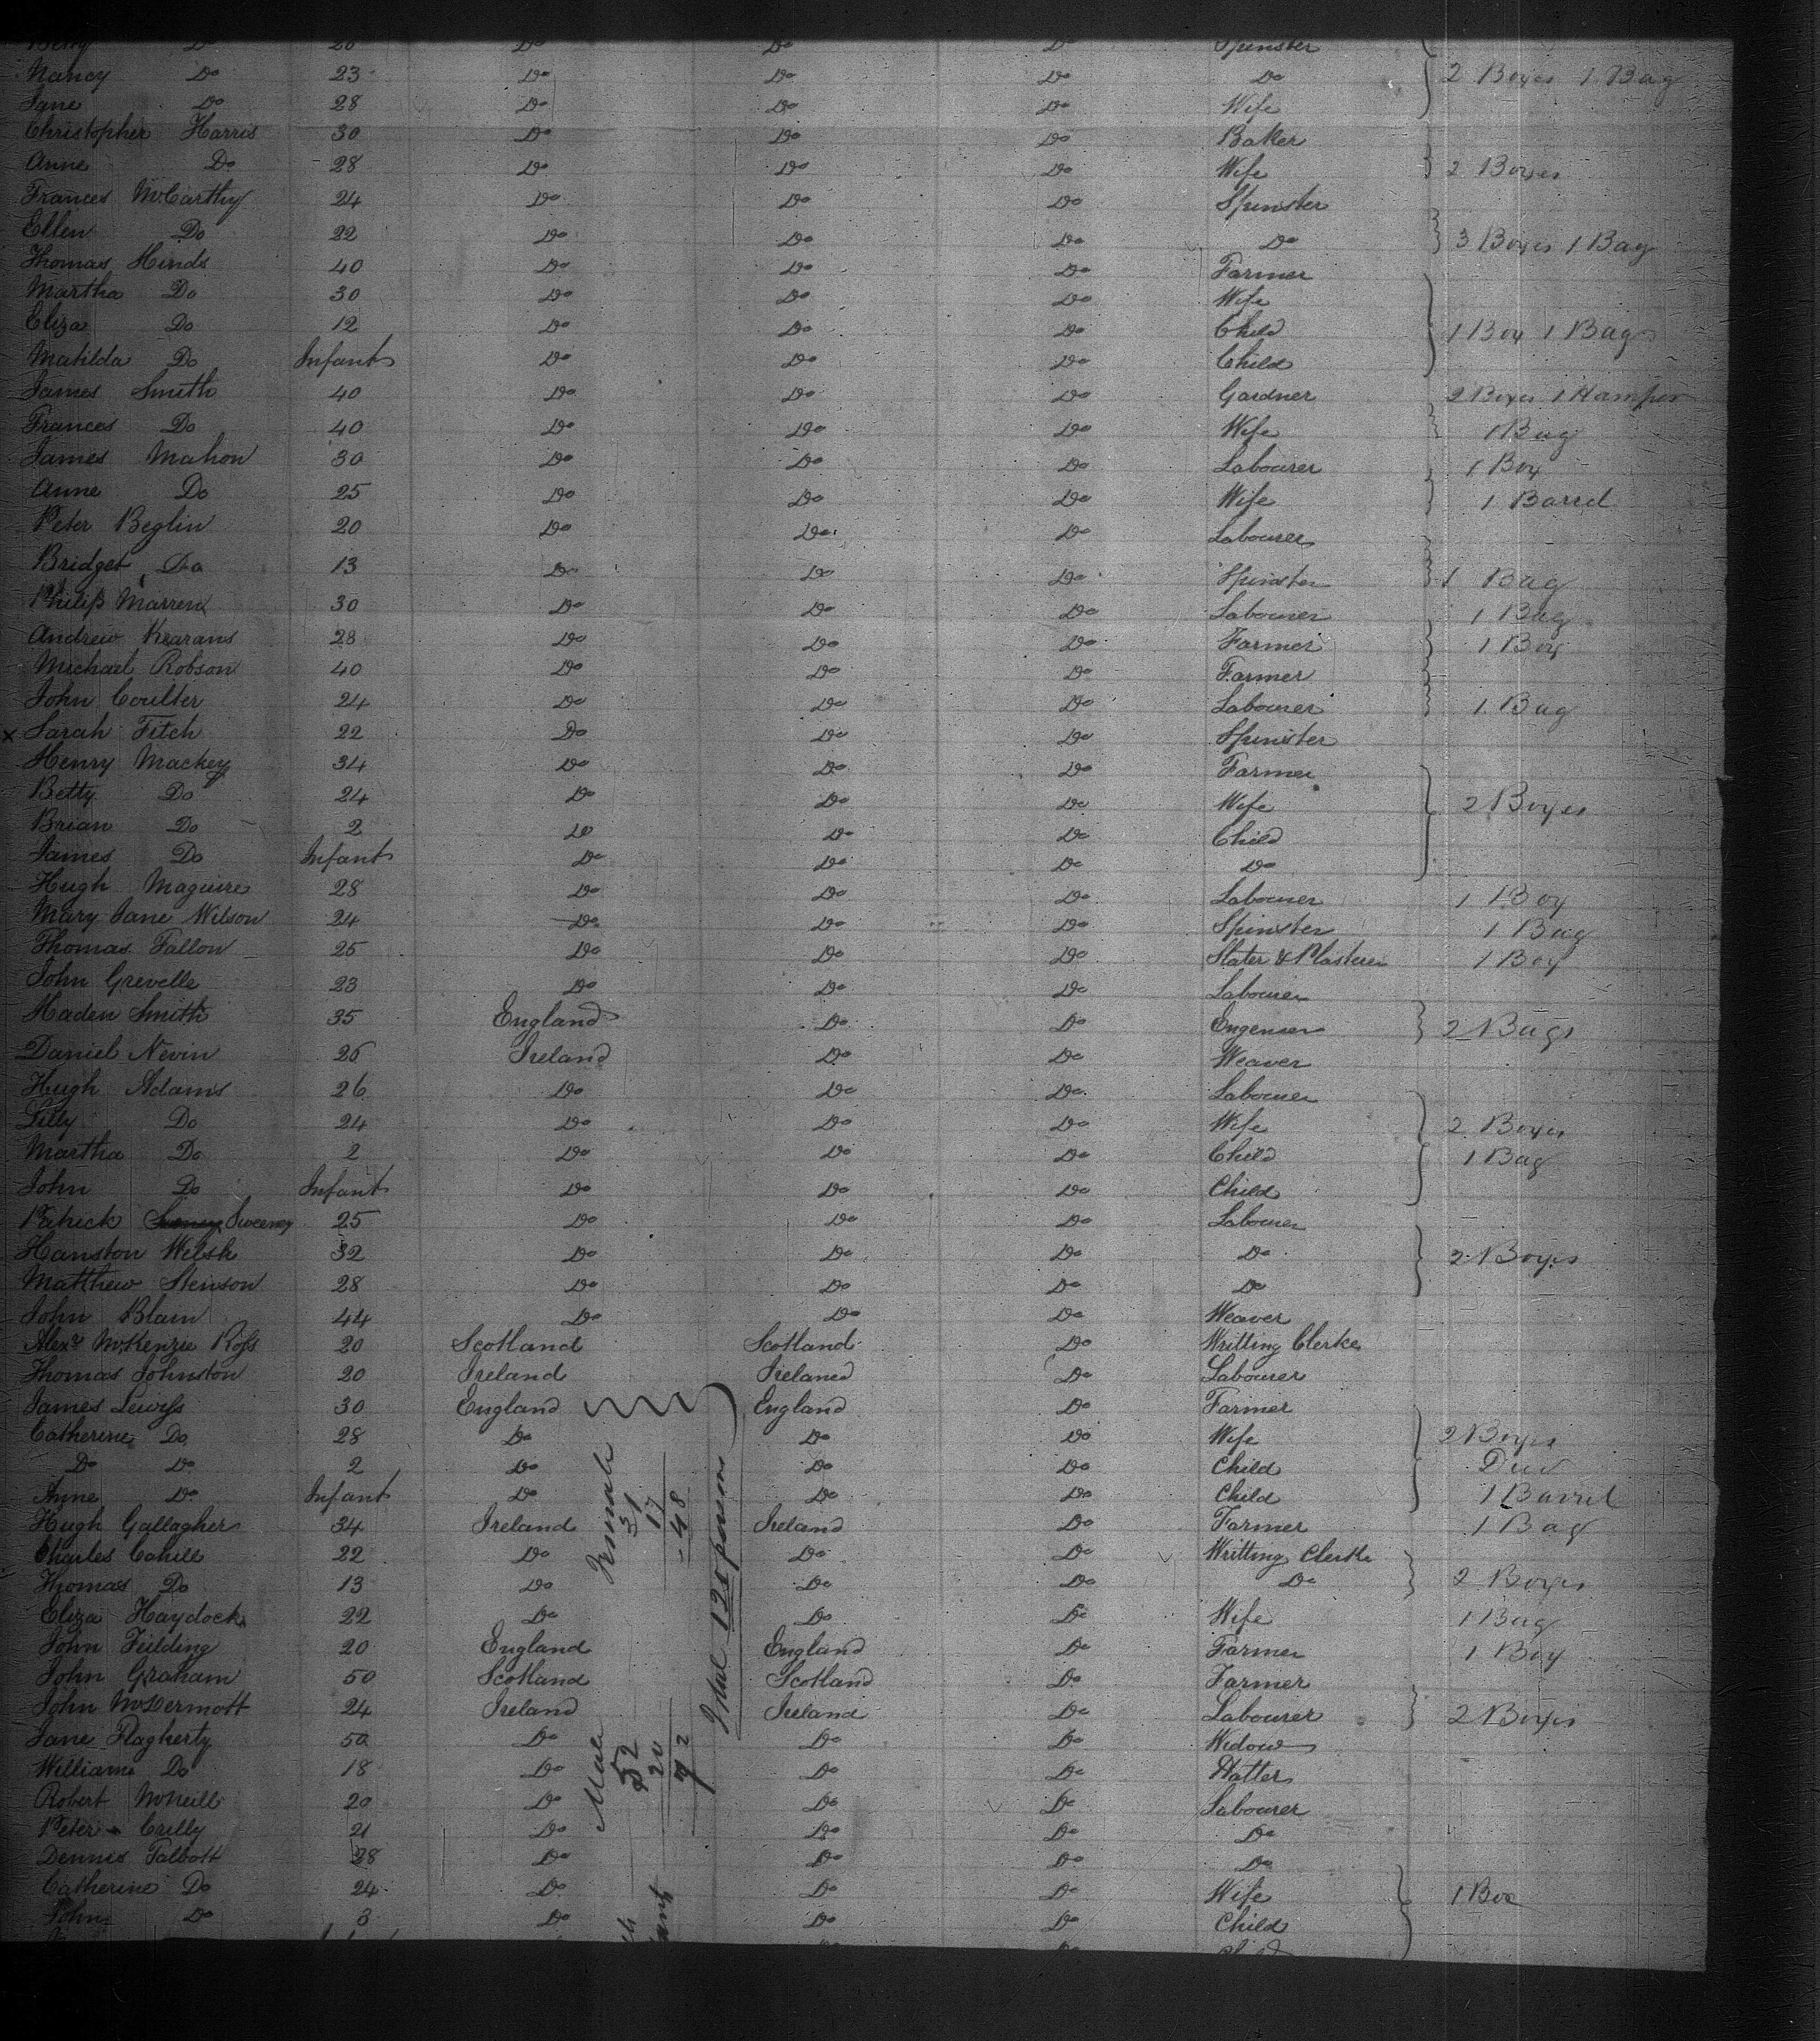 Betty Do 20 Do Do Do Spinster
Nancy Do 23 Do Do Do Do 2 Boxes 1 Bag
Jane Do 28 Do Do Do Wife
Christopher Harris 30 Do Do Do Baker
Anne Do 28 Do Do Do Wife 2 Boxes
Frances McCarthy 24 Do Do Do Spinster
Ellen Do 22 Do Do Do Do 3 Boxes 1 Bag
Thomas Hinds 40 Do Do Do Farmer
Martha Do 30 Do Do Do Wife
Eliza Do 12 Do Do Do Child 1 Box 1 Bag
Matilda Do Infant Do Do Do Child
James Smith 40 Do Do Do Gardner 2 Boxes 1 Hamper
Frances Do 40 Do Do Do Wife 1 Bag
James Mahon 30 Do Do Do Labourer 1 Box
Anne Do 25 Do Do Do Wife 1 Barrel
Peter Beglin 20 Do Do Do Labourer
Bridget Do 13 Do Do Do Spinster 1 Bag
Philip Marren 30 Do Do Do Labourer 1 Bag
Andrew Kearans 28 Do Do Do Farmer 1 Box
Michael Robson 40 Do Do Do Farmer
John Coulter 24 Do Do Do Labourer 1 Bag
x Sarah Fitch 22 Do Do Do Spinster
Henry Mackey 34 Do Do Do Farmer
Betty Do 24 Do Do Do Wife 2 Boxes
Brian Do 2 Do Do Do Child
James Do Infant Do Do Do Do
Hugh Maguire 28 Do Do Do Labourer 1 Box
Mary Jane Wilson 24 Do Do Do Spinster 1 Bag
Thomas Fallon 25 Do Do Do Slater & Plasterer 1 Box
John Grevelle 23 Do Do Do Labourer
Haden Smith 35 England Do Do Engeneer 2 Bags
Daniel Nevin 26 Ireland Do Do Weaver
Hugh Adams 26 Do Do Do Labourer
Lilly Do 24 Do Do Do Wife 2 Boxes
Martha Do 2 Do Do Do Child 1 Bag
John Do Infant Do Do Do Child
Patrick Sweeney 25 Do Do Do Labourer
Hanston Welsh 32 Do Do Do Do 2 Boxes
Matthew Stenson 28 Do Do Do Do
John Blain 44 Do Do Do Weaver
Alexr McKenzie Ross 20 Scotland Scotland Do Writting Clerke
Thomas Johnston 20 Ireland Ireland Do Labourer
James Lewiss 30 England England Do Farmer
Catherine Do 28 Do Do Do Wife 2 Boxes
Do Do 2 Do Do Do Child
Anne Do Infant Do Do Do Child 1 Barrel
Hugh Gallagher 34 Ireland Ireland Do Farmer 1 Bag
Charles Cahill 22 Do Do Do Writting Clerke
Thomas Do 13 Do Do Do Do 2 Boxes
Eliza Haydock 22 Do Do Do Wife 1 Bag
John Feilding 20 England England Do Farmer 1 Box
John Graham 50 Scotland Scotland Do Farmer
John McDermott 24 Ireland Ireland Do Labourer 2 Boxes
Jane Flagherty 50 Do Do Do Widow
William Do 18 Do Do Do Hatter
Robert McNeill 20 Do Do Do Labourer
Peter Crilly 21 Do Do Do Do
Dennis Talbott 28 Do Do Do Do
Catherine Do 24 Do Do Do Wife 1 Box
John Do 3 Do Do Do Child
Male
52
20
72
Female
31
17
48
Total 120 persons